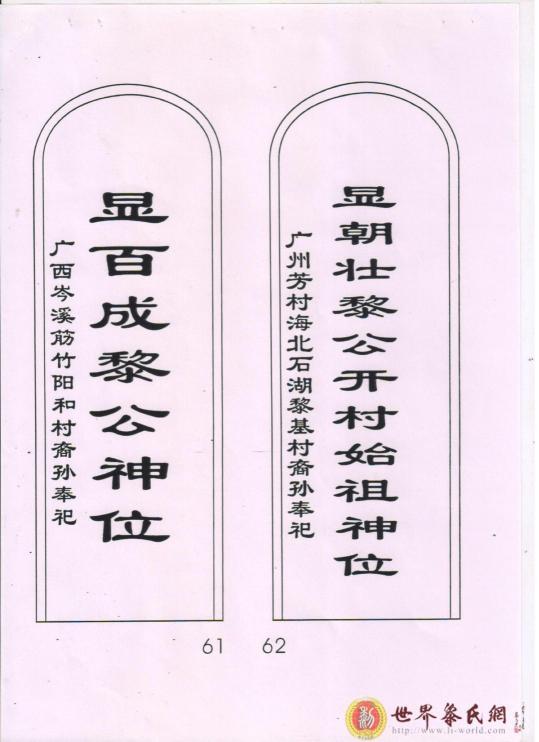 显朝壮黎公开村始祖神位
广州芳村海北石湖黎基村裔孙奉祀
显百成黎公神位
广西岑溪筋竹阳和村裔孙奉祀
61 62
世界黎氏網
http://www.li-world.com